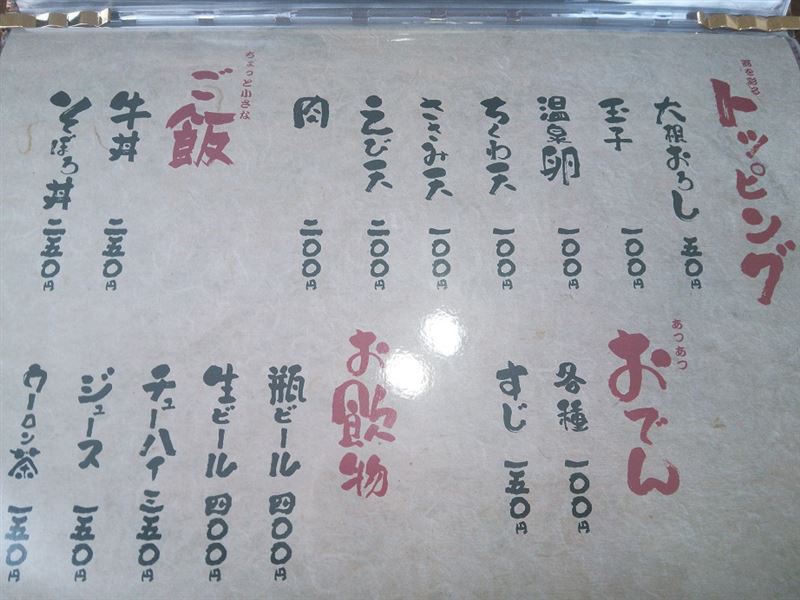 トッピング
大根おろし 五〇円
玉子 一〇〇円
温泉卵 一〇〇円
ちくわ天 一〇〇円
ささみ天 一〇〇円
えび天 二〇〇円
肉 二〇〇円
ちょっと小さな
ご飯
牛丼 二五〇円
そぼろ丼 二五〇円
あつあつ
おでん
各種 一〇〇円
すじ 一五〇円
お飲物
瓶ビール 四〇〇円
生ビール 四〇〇円
チューハイ 三五〇円
ジュース 一五〇円
ウーロン茶 一五〇円